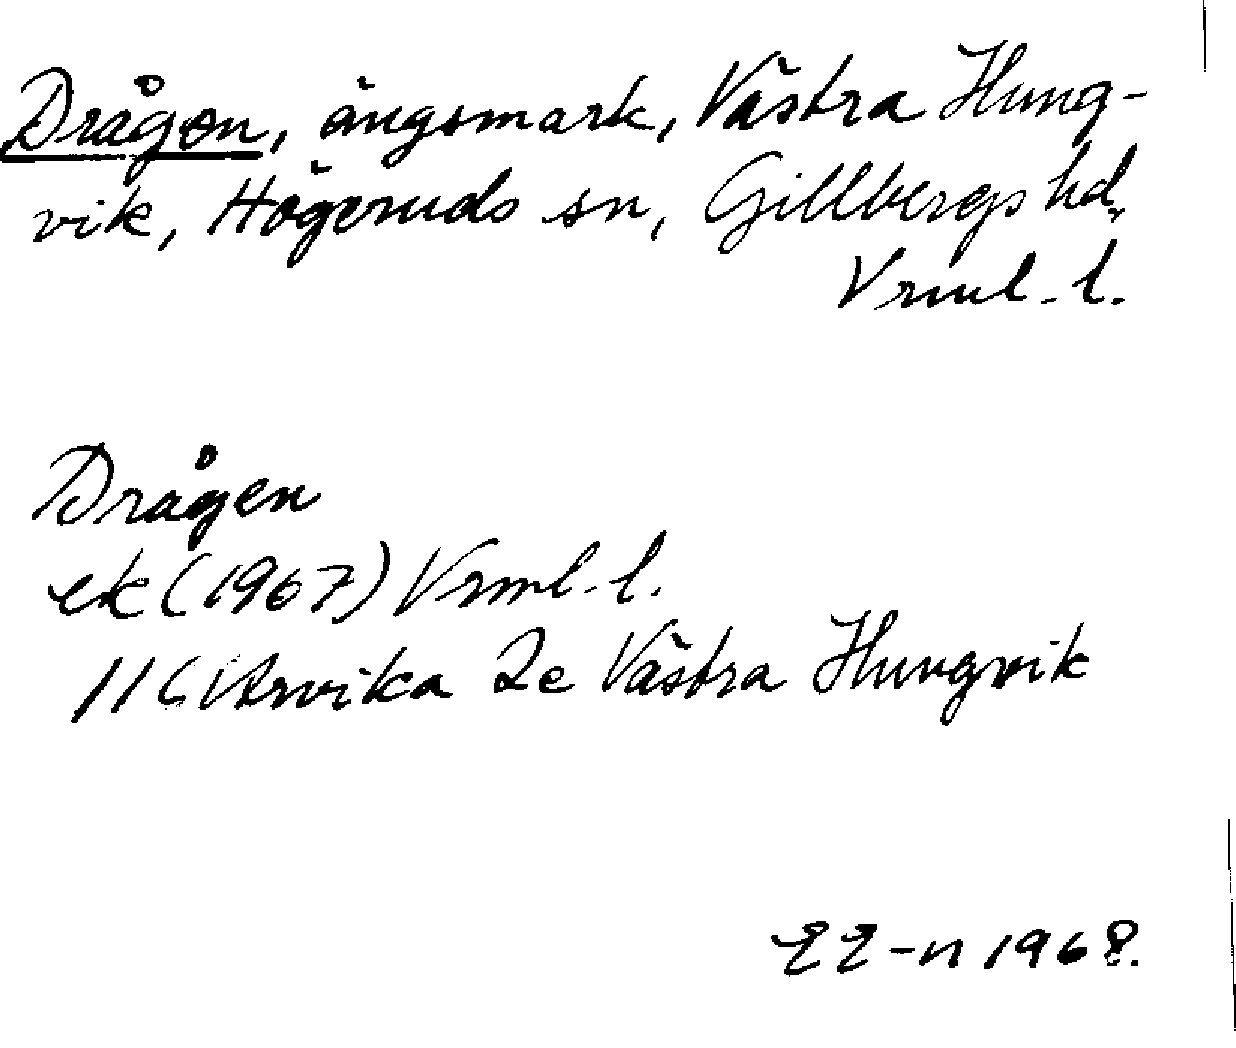 Drågen, ängsmark, Västra Hung-
vik, Högeruds sn, Gillbergs hd,
Vrml. l.
Drågen
ek (1967) Vrml. l.
11C Arvika 2e Västra Hungvik
EE-n 1968.